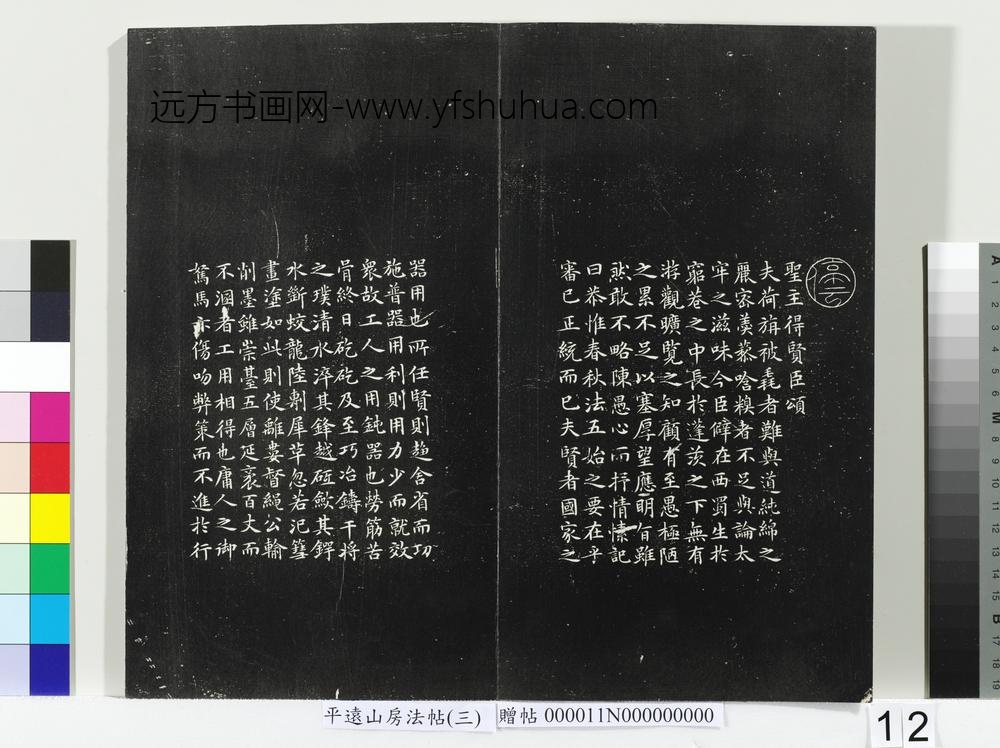 远方书画网-www.yfshuhua.com
聖主得賢臣頌
夫荷旃被毳者難與道純綿之
麗宻羹藜唅糗者不足與論太
牢之滋味今臣僻在西蜀生於
窮巷之中長於蓬茨之下無有
游觀曠覽之知顧有至愚極陋
之累不足以塞厚望應明旨雖
然敢不略陳愚心而抒情愫記
曰恭惟春秋法五始之要在乎
審已正統而已夫賢者國家之
器用也所任賢則趨舍省而功
施普器用利則用力少而就效
衆故工人之用鈍器也勞筋苦
骨終日矻矻及至巧冶鑄干將
之璞清水淬其鋒越砥斂其鍔
水斷蛟龍陸剸犀革忽若汜篲
畫塗如此則使離婁督繩公輸
削墨雖崇臺五層延袤百丈而
不溷者工用相得也庸人之御
駑馬亦傷吻弊策而不進於行
平遠山房法帖(三)
贈帖 000011N000000000
12